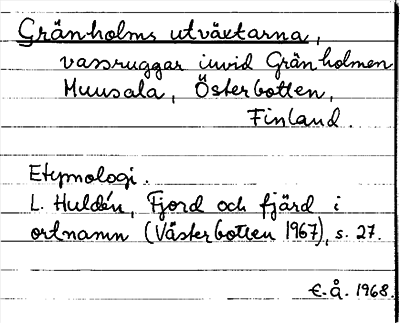 Gränholms utväxtarna,
vassruggar invid Gränholmen
Munsala, Österbotten,
Finland.
Etymologi.
L. Huldén, Fjord och fjärd i
ortnamn (Västerbotten 1967), s. 27.
E.Å. 1968.